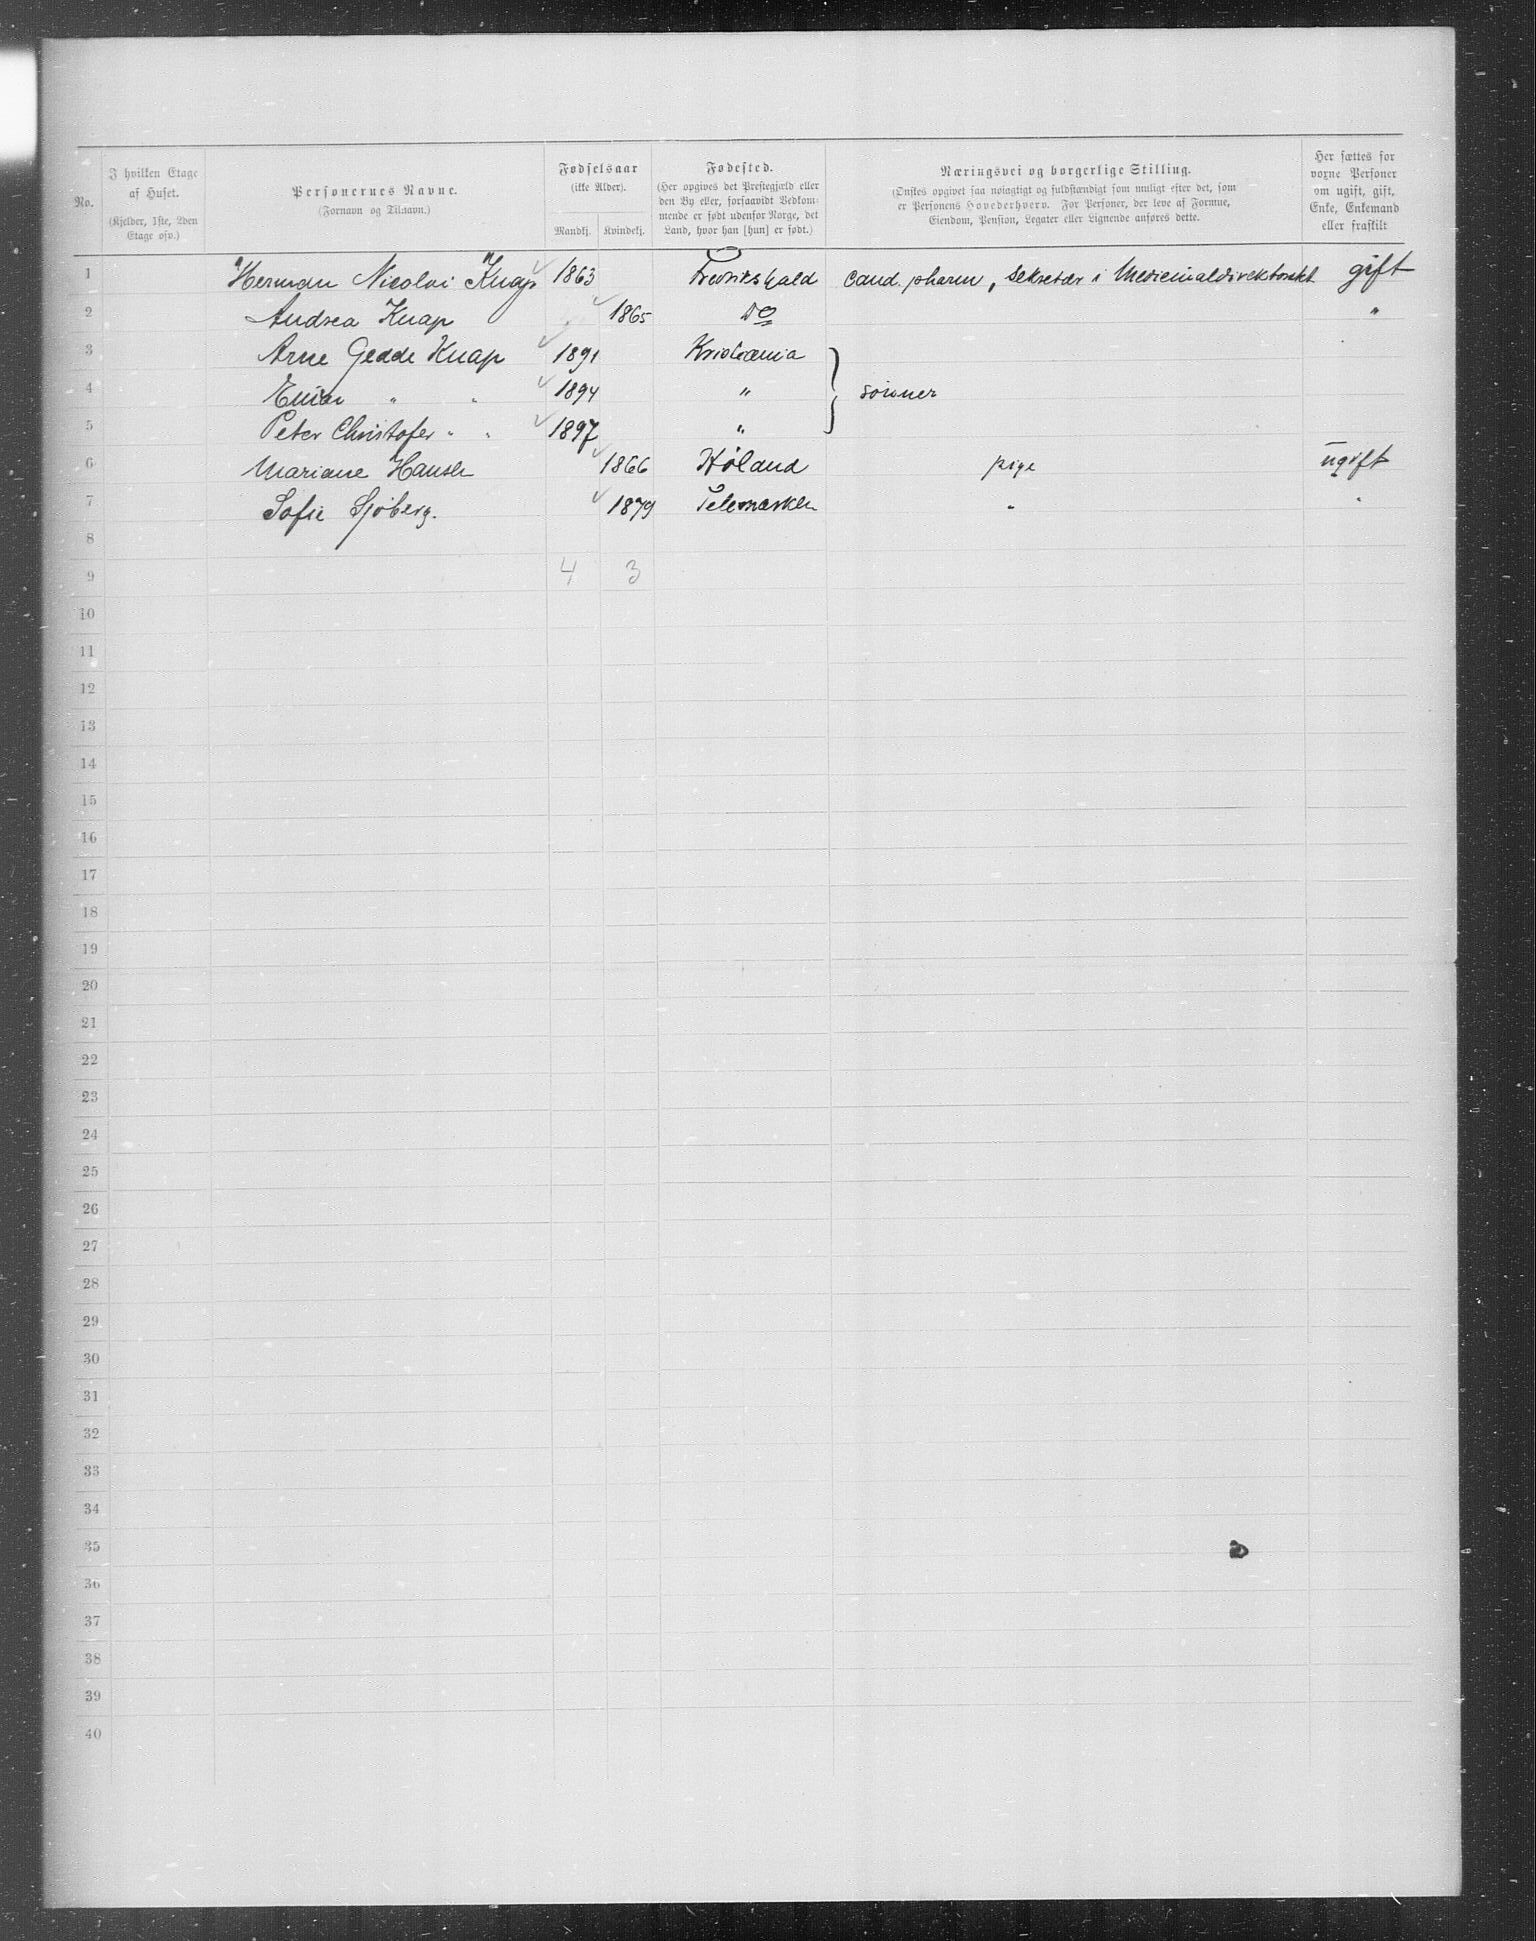 No. I hvilken Etage af Huset. (Kjelder, 1ste, 2den Etage osv.) Personernes Navne. (Fornavn og Tilnavn.) Fødselsaar (ikke Alder). Mandkj. Kvindekj. Fødested. (Her opgives det Prestegjæld eller den By eller, forsaavidt Vedkommende er født udenfor Norge, det Land, hvor han [hun] er født.) Næringsvei og borgerlige Stilling. (Ønskes opgivet saa nøiagtigt og fuldstændigt som muligt efter det, som er Personens Hovederhverv. For Personer, der leve af Formue, Eiendom, Pension, Legater eller Lignende anføres dette. Her sættes for voxne Personer om ugift, gift, Enke, Enkemand eller fraskilt
1 Herman Nicolai Knap 1863 Fredrikshald cand. pharm, sekretær i Medicinaldirektoratet gift
2 Andrea Knap 1865 Do "
3 Arne Gedde Knap 1891 Kristiania
4 Einar " " 1894 " } sønner
5 Peter Christofer " " 1897 "
6 Mariane Hansen 1866 Høland pige ugift
7 Sofie Sjöberg. 1879 Telemarken " "
8
9 4 3
10
11
12
13
14
15
16
17
18
19
20
21
22
23
24
25
26
27
28
29
30
31
32
33
34
35
36
37
38
39
40